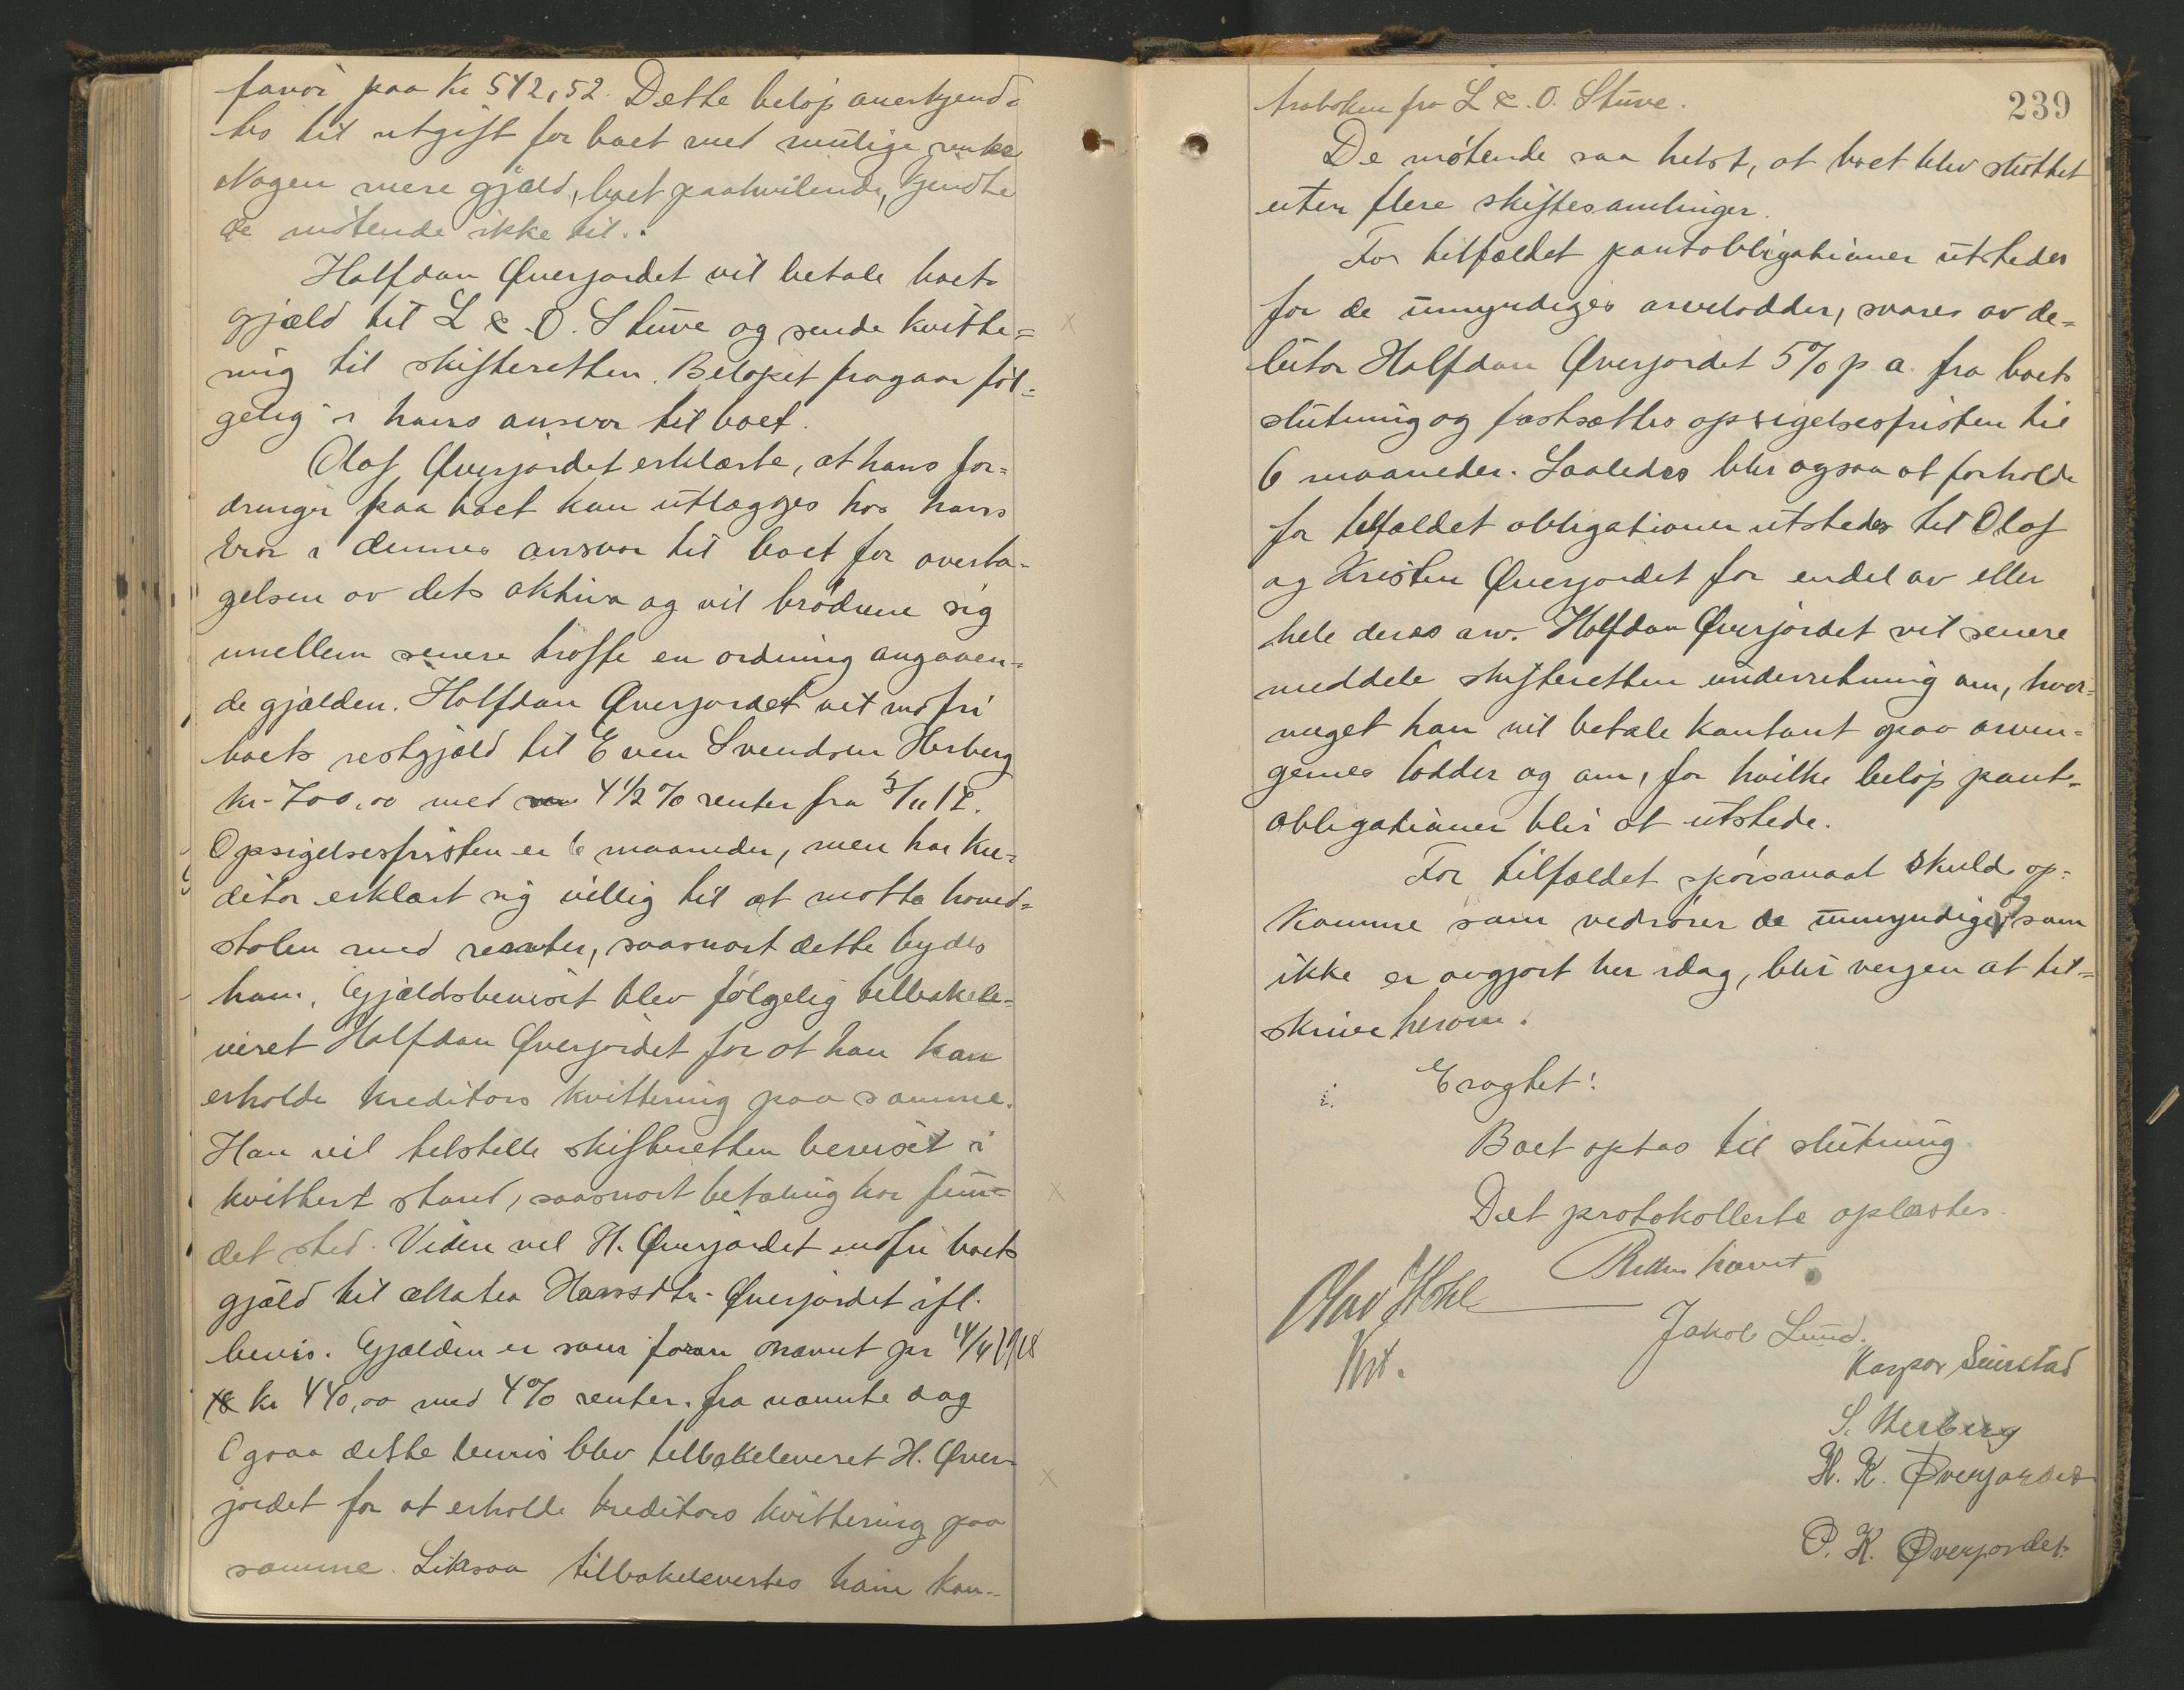 favör paa kr 542,52. Dette beløp anerkjend-
tes til utgift for boet med mulige renter
Nogen mere gjæld, boet paahvilende, kjendte
de møtende ikke til.
Halfdan Øverjordet vil betale boets
gjæld til L & O. Stuve og sende kvitte=
ring til skifteretten. Beløpet fragaar føl=
gelig i hans ansvar til boet.
Olaf Øverjordet erklærte, at hans for=
dringer paa boet kan utlægges hos hans
bror i dennes ansvar til boet for overta-
gelsen av dets aktiva og vil brødrene sig
imellem senere træffe en ordning angaaen=
de gjælden. Halfdan Øverjordet vil indfri
boets restgjæld til Even Svendsen Herberg
kr. 700,00 med 4½ % renter fra 5/11 12.
Opsigelsesfristen er 6 maaneder, men har kre=
ditor erklært sig villig til at motta hoved=
stolen med renter, saasnart dette bydes
ham. Gjældsbeviset blev følgelig tilbakele=
veret Halfdan Øverjordet for at han kan
erholde kreditors kvittering paa samme.
Han vil tilstille skifteretten beviset i
kvittert stand, saasnart betaling har fun=
det sted. Videre vil H. Øverjordet indfri boets
gjæld til Mathea Hansdtr. Øverjordet ifl.
bevis. Gjælden er som foran nævnt pr 14/4 1918
kr 440,00 med 4% renter fra nævnte dag
Ogsaa dette bevis blev tilbakeleveret H. Øver-
jordet for at erholde kreditors kvittering paa
samme. Likesaa tilbakelevertes ham kon-
239
traboken fra L & O. Stuve.
De møtende saa helst, at boet blev sluttet
uten flere skiftesamlinger.
For tilfældet pantobligationer utstedes
for de umyndiges arvelodder, svares av de=
bitor Halfdan Øverjordet 5% p. a. fra boets
slutning og fastsættes opsigelsesfristen til
6 maaneder. Saaledes blir ogsaa at forholde
for tilfældet obligationer utstedes til Olaf
og Kristen Øverjordet for endel av eller
hele deres arv. Halfdan Øverjordet vil senere
meddele skifteretten underretning om, hvor=
meget han vil betale kontant paa arvin=
gernes lodder og om, for hvilke beløp pant-
obligationer blir at utstede.
For tilfældet spørsmaal skulde op=
komme som vedrører de umyndige, som
ikke er avgjort her idag, blir vergen at til=
skrive herom.
Eragtet:
Boet optas til slutning.
Det protokollerte oplæstes.
Retten hævet
Olav Hohle
Kst.
Jakob Lund.
Kaspar Seierstad
S. Herberg
H. K. Øverjordet
O. K. Øverjordet.